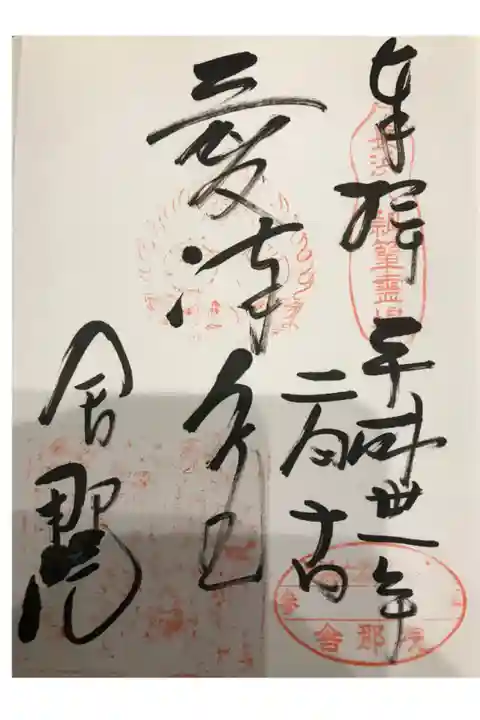 奉拝 平成丗一年
二月
愛染明王
舎那院
舎那院